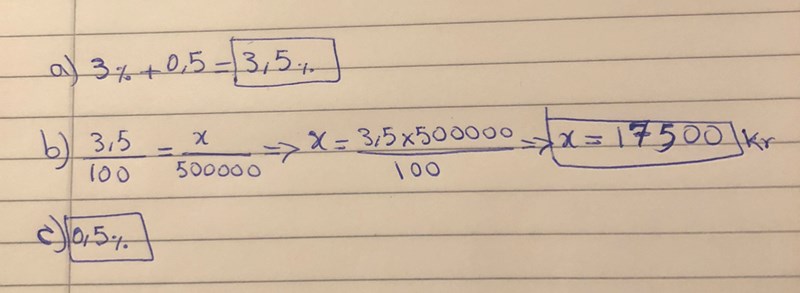 a) 3% + 0,5 = 3,5%
b) 3,5/100 = x/500000 => x = 3,5×500000/100 => x = 17500 Kr
c) 0,5%